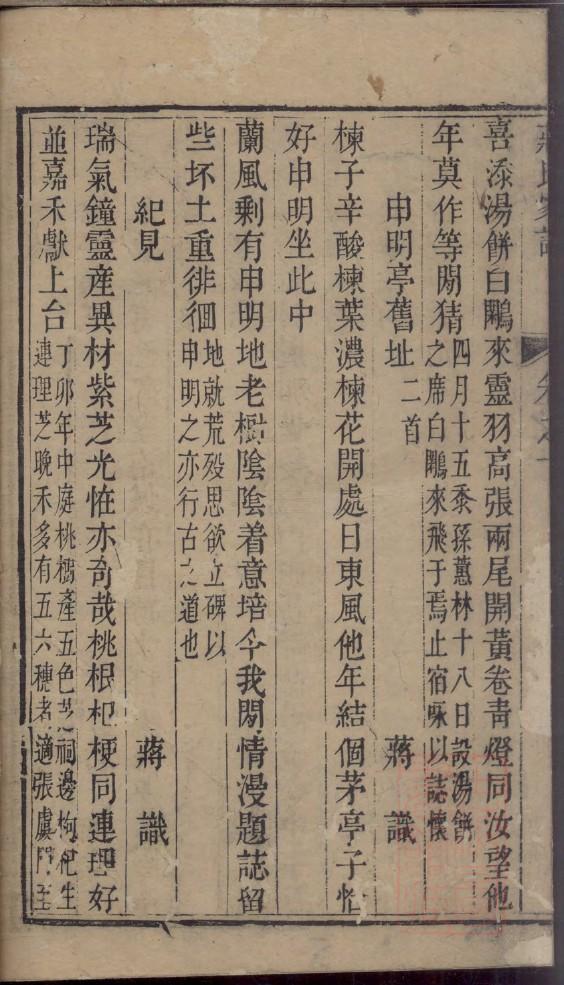 喜添湯餅白鷴來靈羽高張兩尾開黃卷青燈同汝望他
年莫作等閒猜四月十五忝孫蕙林十八日設湯餅
之席白鷴來飛于焉止宿咏以誌懷
申明亭舊址二首 蔣識
楝子辛酸楝葉濃楝花開處日東風他年結個茅亭子恰
好申明坐此中
蘭風剩有申明地老樹陰陰着意培今我閒情漫題誌留
些坏土重徘徊地就荒殁思欲立碑以
申明之亦行古之道也
紀見 蔣識
瑞氣鐘靈產異材紫芝光怪亦奇哉桃根杞梗同連理好
並嘉禾獻上台丁卯年中庭桃樹產五色芝祠邊枸杞生
連理芝晚禾多有五六穗者適張虞門至